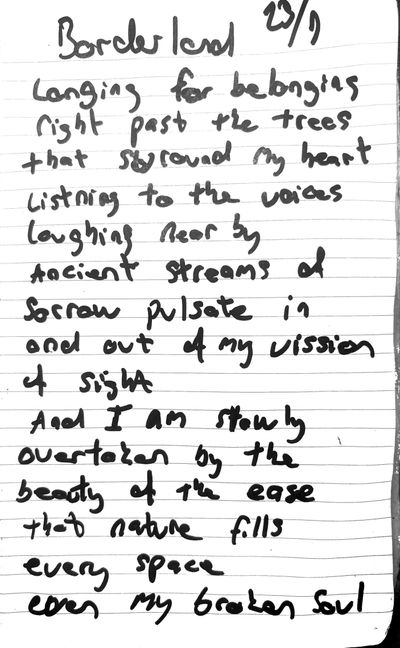 Borderland 23/9
Longing for belonging
right past the trees
that suround my heart
Listning to the voices
Laughing near by
Ancient streams of
Sorrow pulsate in
and out of my vission
of sight
And I am slowly
overtaken by the
beauty of the ease
that nature fills
every space
even my broken soul